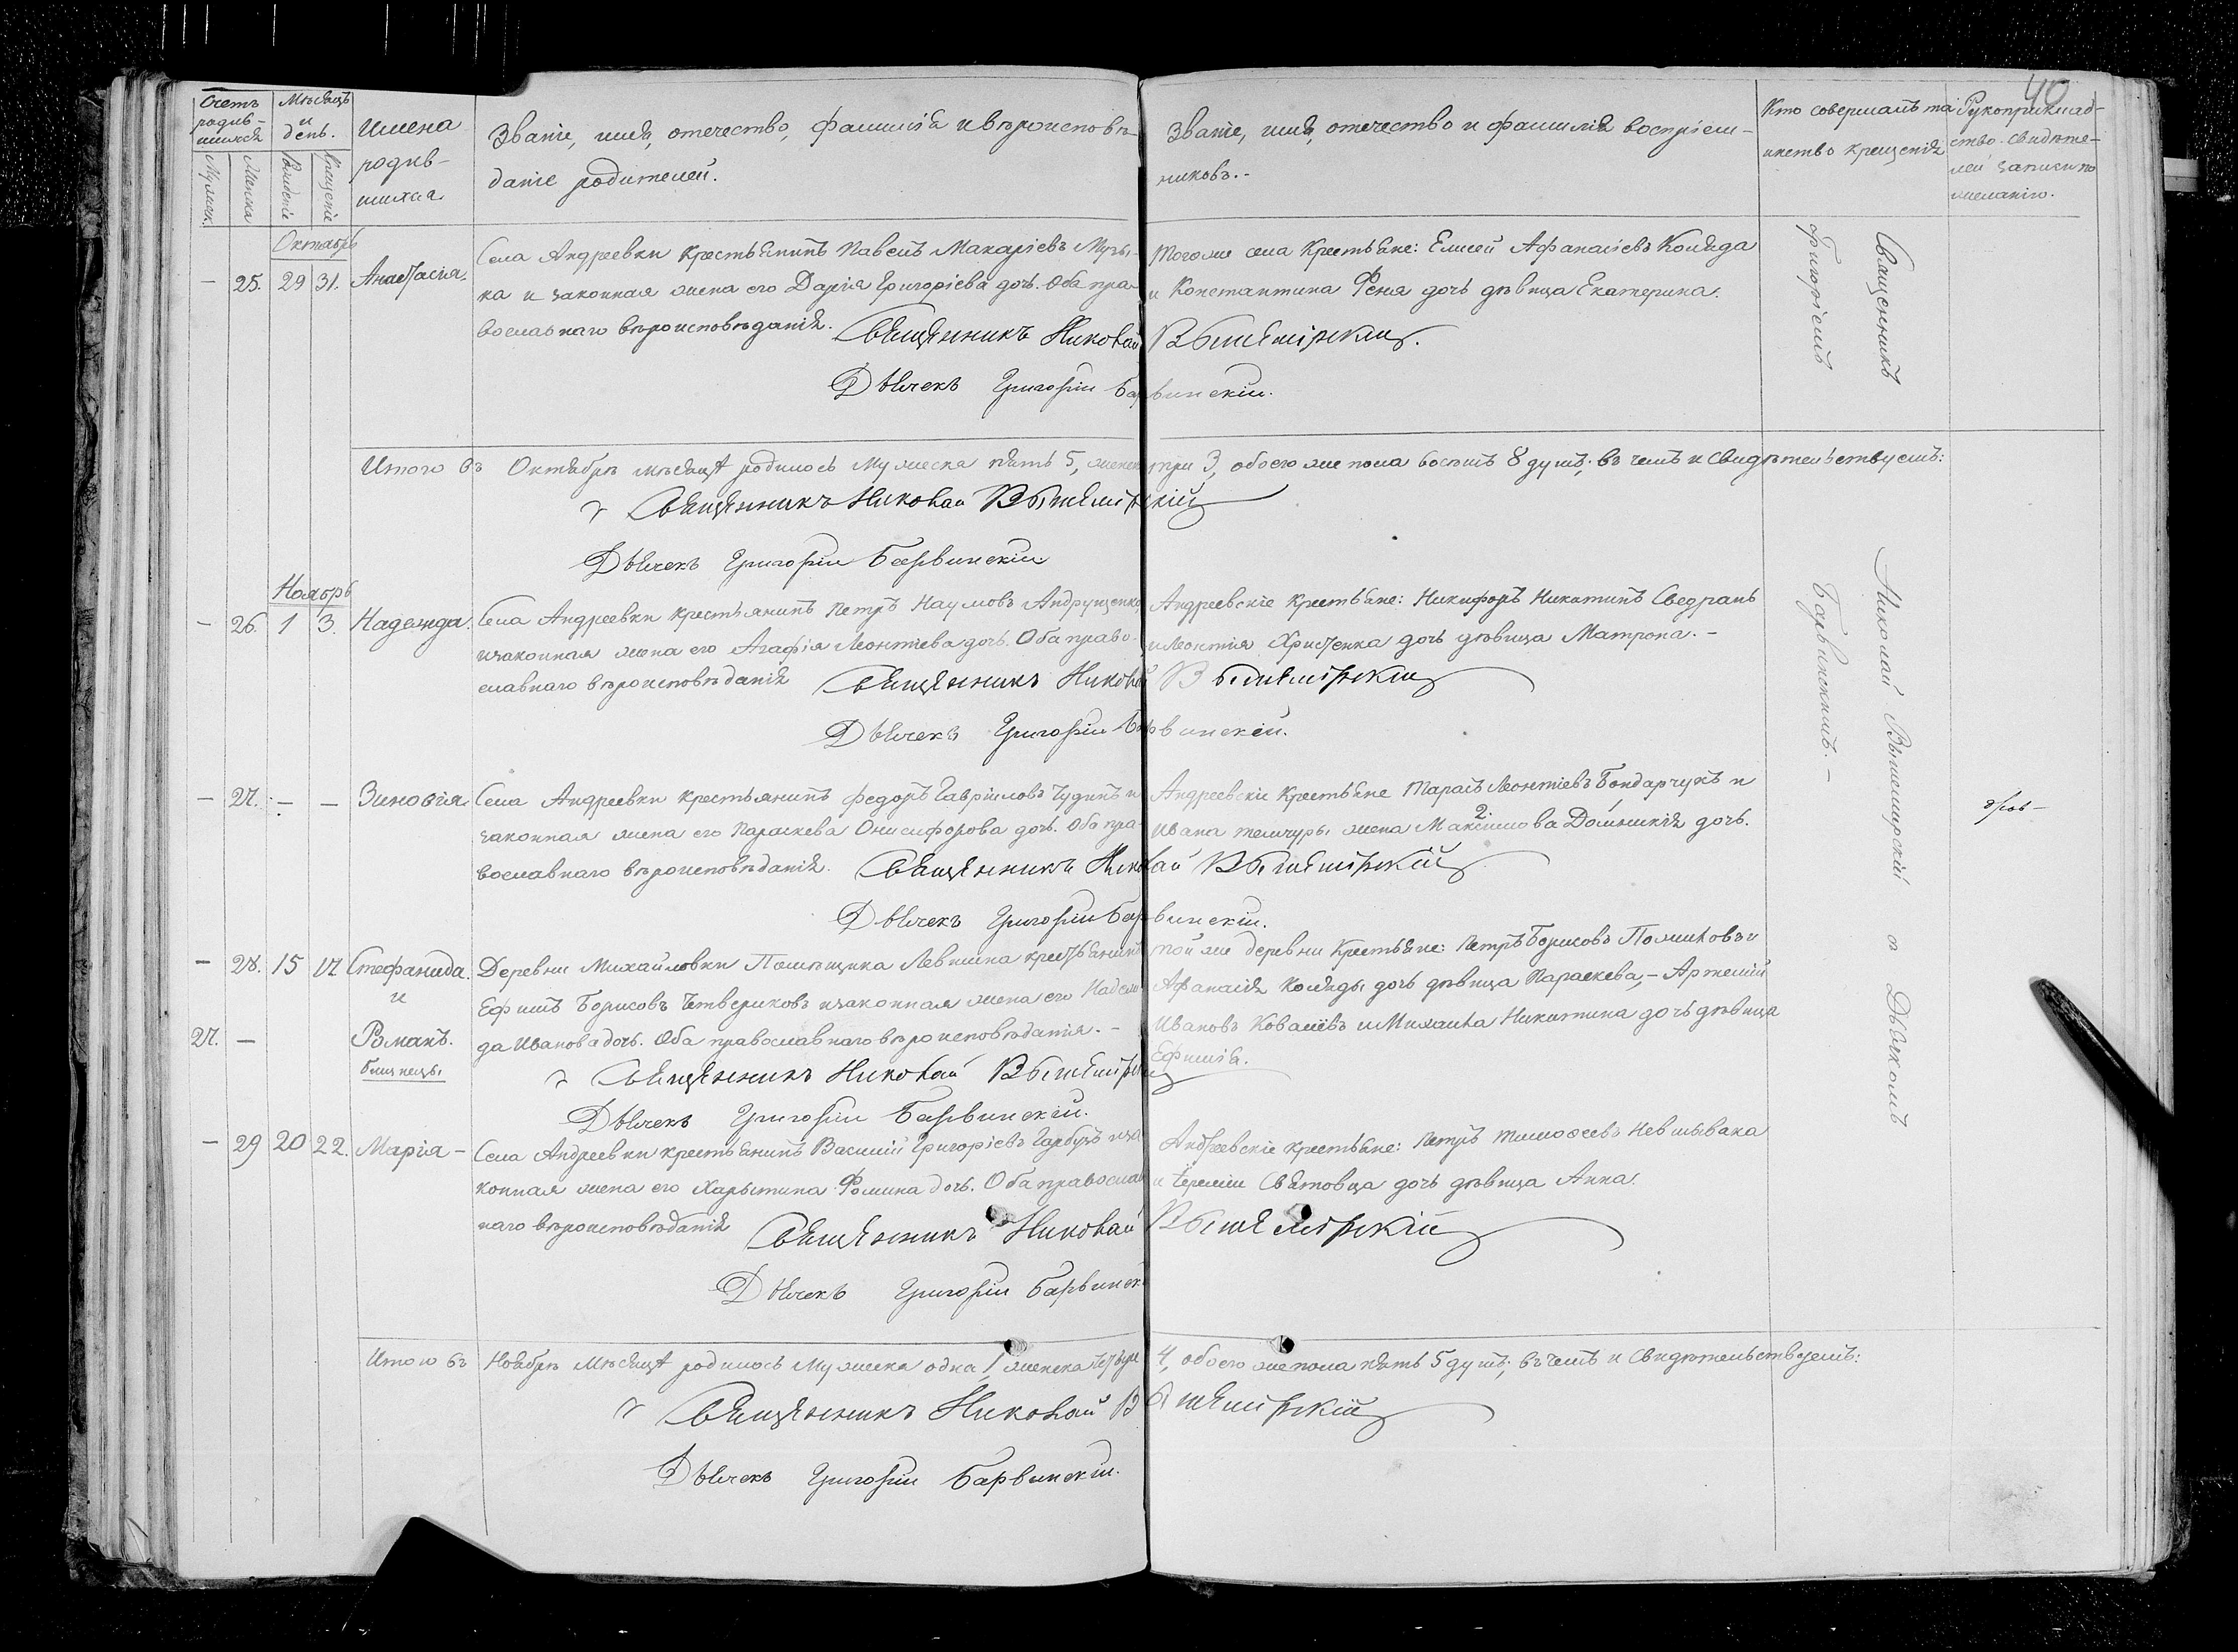 40
Счетъ родив-шихся
Мѣсяцъ и день.
Имена родив-шихся
Званіе, имя, отечество, фамилія и вѣроисповѣ-
даніе родителей.
Званіе, имя, отечество и фамилія воспріем-
никовъ.-
Кто совершалъ та-
инство крещенія
Рукоприклад-
ство свидѣте-
лей записи по
желанію.
Мужеск.
Женска
Рожденіе
Крещеніе
Октябрь
— 25. 29 31. Анастасія.
Села Андреевки крестьянинъ Павелъ Макаріевъ Музы-
ка и законная жена его Дарія Григоріева дочь. Оба пра-
вославнаго вѣроисповѣданія. Священникъ Николай Вышемірскій.
Дьячекъ Григорій Барвинскій.
Тогоже села крестьяне: Елисей Афанасіевъ Коляда
и Константина Феня дочь дѣвица Екатерина.
Итого въ Октябрѣ мѣсяцѣ родилось мужеска пять 5, женска три 3, обоего же пола восемь 8 душъ; въ чемъ и свидѣтельствуемъ:
Священникъ Николай Вышемірскій
Дьячекъ Григорій Барвинскій
Ноябрь
— 26. 1 3. Надежда.
Села Андреевки крестьянинъ Петръ Наумовъ Андрущенко,
и законная жена его Агафія Леонтіева дочь. Оба право-
славнаго вѣроисповѣданія Священникъ Николай Вышемірскій
Дьячекъ Григорій Барвинскій.
Андреевскіе крестьяне: Никифоръ Никитинъ Сведранъ
и Леонтія Христенка дочь дѣвица Матрона. -
— 27. — — Зиновія.
Села Андреевки крестьянинъ Федоръ Гавріиловъ Чудинъ и
законная жена его Параскева Онисифорова дочь. Оба пра-
вославнаго вѣроисповѣданія. Священникъ Николай Вышемірскій
Дьячекъ Григорій Барвинскій.
Андреевскіе крестьяне Тарасъ Леонтіевъ Бондарчукъ и
Ивана жена Максимова Домникія дочь.
— 28. 15 17 Стефанида.
и
27. — Романъ.
близнецы
Деревни Михайловки Помѣщика Левшина крестьянинъ
Ефимъ Борисовъ Четвериковъ и законная жена его Надеж-
да Иванова дочь. Оба православнаго вѣроисповѣданія. -
Священникъ Николай Вышемірскій
Дьячекъ Григорій Барвинскій.
Той же деревни крестьяне: Петръ Борисовъ и
Афанасія Коляды дочь дѣвица Параскева, - Артемій
Ивановъ Ковалёвъ и Михаила Никитина дочь дѣвица
Ефимія.
— 29 20 22. Марія -
Села Андреевки крестьянинъ Василій Григоріевъ Гарбузъ и за-
конная жена его Харытина Фомина дочь. Оба православ-
наго вѣроисповѣданія Священникъ Николай Вышемірскій
Дьячекъ Григорій Барвинск
Андреевскіе крестьяне: Петръ Тимофеевъ Невмывака
и Еремія Святовца дочь дѣвица Анна.
Итого въ Ноябрѣ мѣсяцѣ родилось мужеска одна 1, женска четыре 4, обоего же пола пять 5 душъ; въ чемъ и свидѣтельствуемъ:
Священникъ Николай Вышемірскій
Дьячекъ Григорій Барвинскій.
Священникъ Николай Вышемірскій съ Дьячкомъ
Григоріемъ Барвинскимъ. -